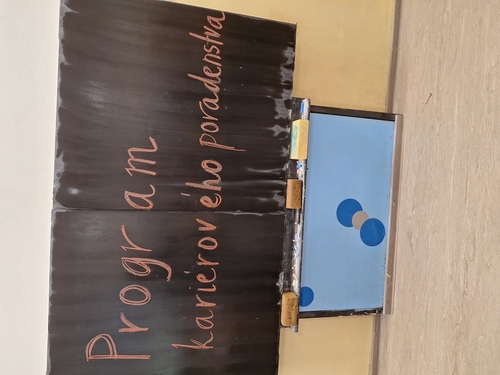 Program
kariérového poradenstva